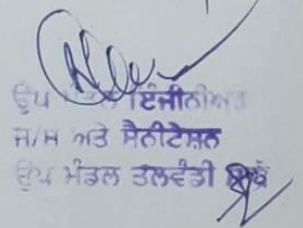 ਉਪ ਮੰਡਲ ਇੰਜੀਨੀਅਰ
ਜ/ਸ ਅਤੇ ਸੈਨੀਟੇਸ਼ਨ
ਉਪ ਮੰਡਲ ਤਲਵੰਡੀ